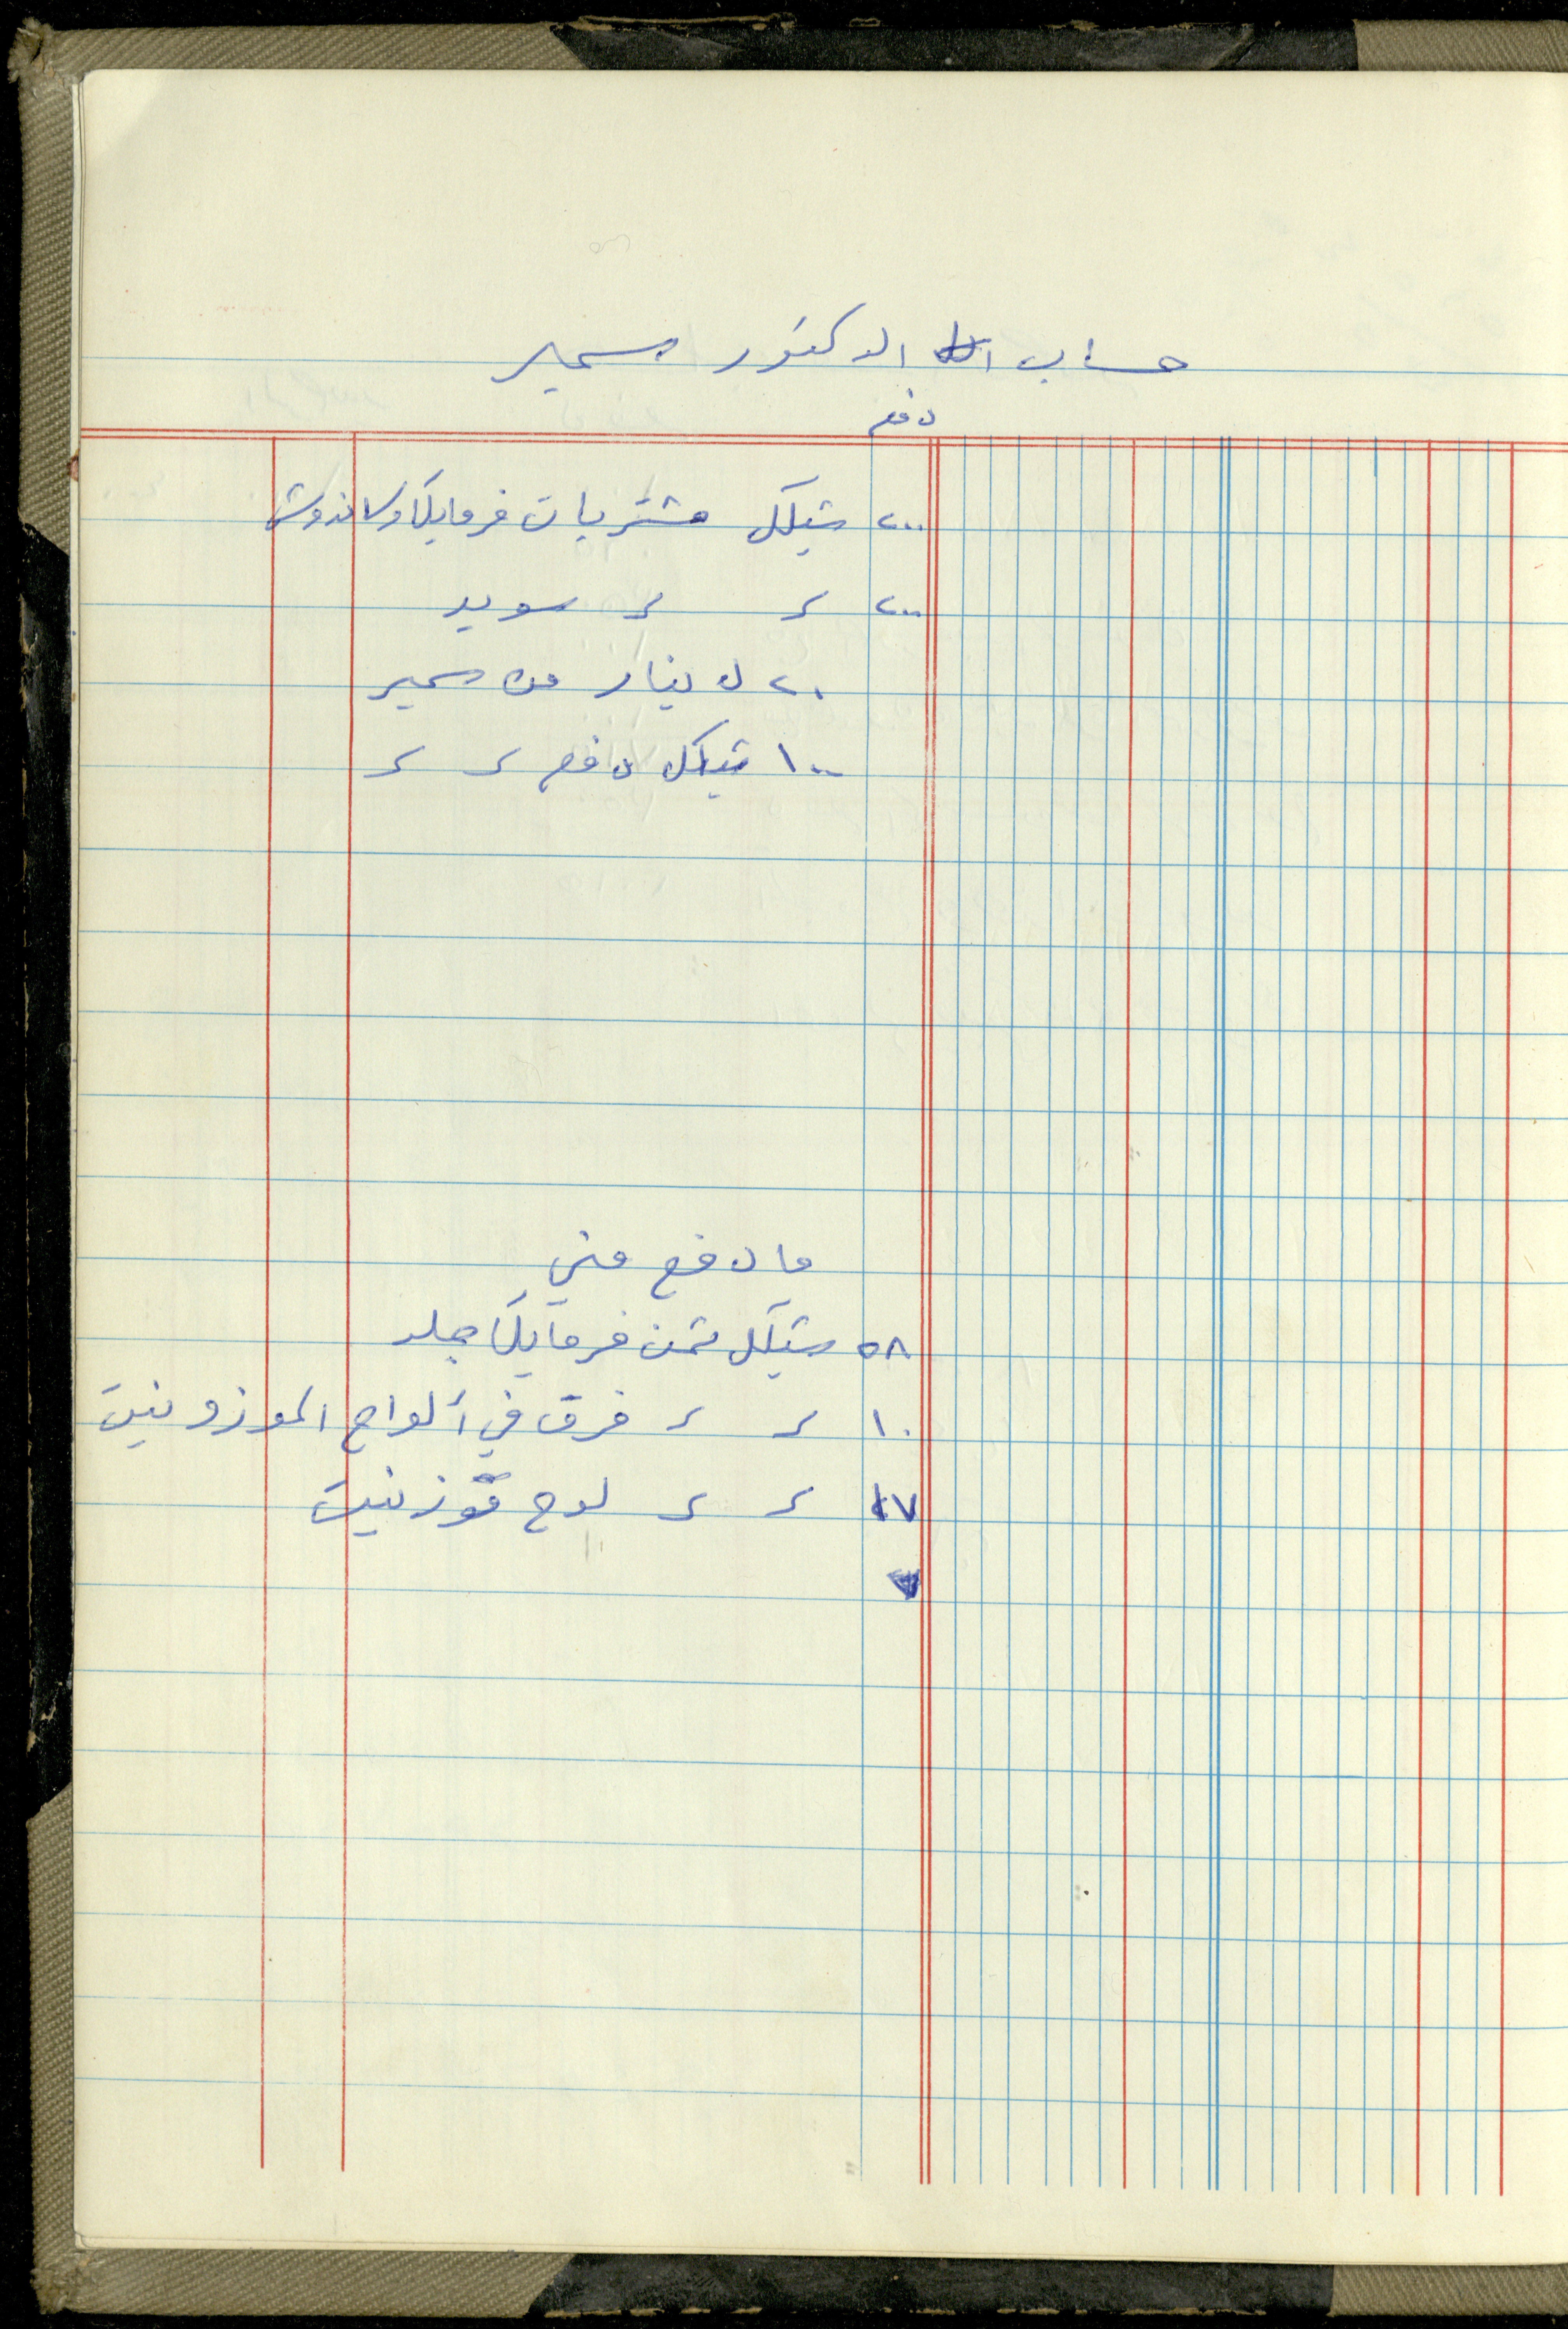 حساب الدكتور سمير
دفع
٢٠٠ شيكل مشتريات فرمايكا وساندوش
٢٠٠ ـ ـ سويد
٢٠ دينار من سمير
١٠٠ شيكل دفع ـ ـ
ما دفع مني
٥٨ شيكل ثمن فرمايكا جلد
١٠ ـ ـ فرق في ألواح الموزونيت
١٧ ـ ـ لوح موزنيت